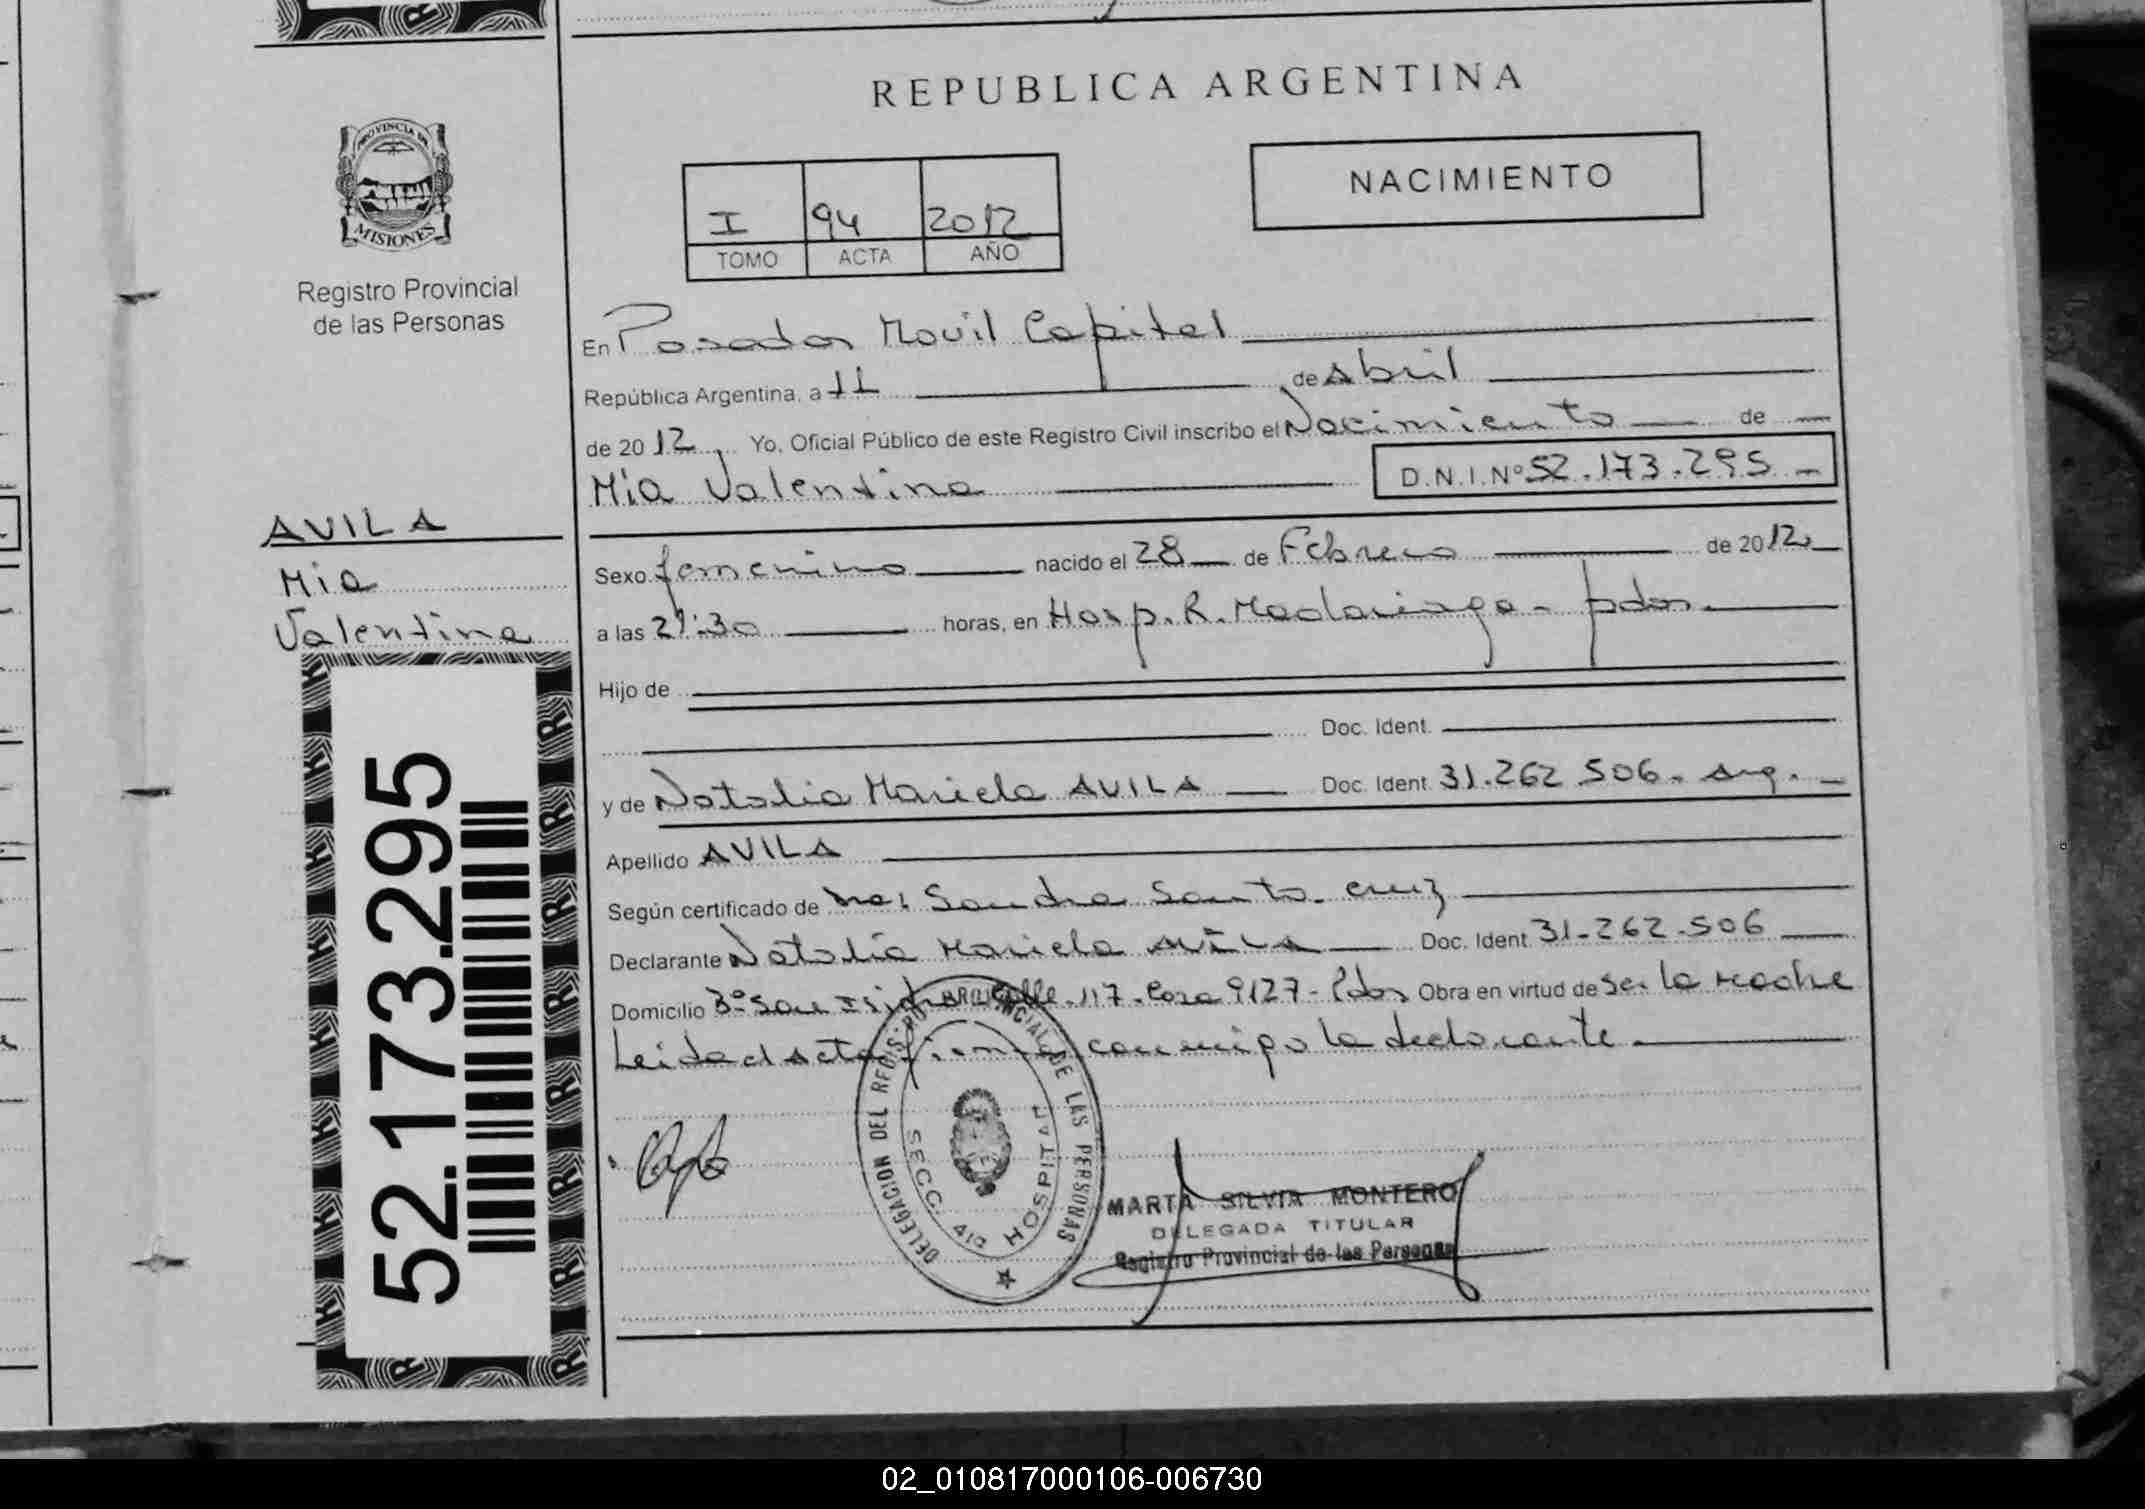 REPUBLICA ARGENTINA
PROVINCIA DE
MISIONES
Registro Provincial
de las Personas
NACIMIENTO
I 94 2012
TOMO ACTA AÑO
En Posadas Movil Capital
República Argentina, a 11 de Abril
de 2012 Yo, Oficial Público de este Registro Civil inscribo el Nacimiento de
Mia Valentina D.N.I.Nº 52.173.295
AVILA
Mia
Valentina
Sexo femenino nacido el 28 de Febrero de 2012
a las 21:30 horas, en Hosp. R. Madariaga - pdas.
Hijo de
Doc. Ident.
y de Natalia Mariela AVILA Doc. Ident. 31.262.506. Arg.
Apellido AVILA
Según certificado de Dra: Sandra Santa Cruz
Declarante Natalia Mariela AVILA Doc. Ident. 31.262.506
Domicilio Bº San Isidro Calle 117. Casa 9127 - Pdas Obra en virtud de ser la madre
Leida el acta firma conmigo la declarante.
52.173.295
DELEGACION DEL REGISTRO PROVINCIAL DE LAS PERSONAS
SECC. 4ta HOSPITAL
MARTA SILVIA MONTERO
DELEGADA TITULAR
Registro Provincial de las Personas
02_010817000106-006730